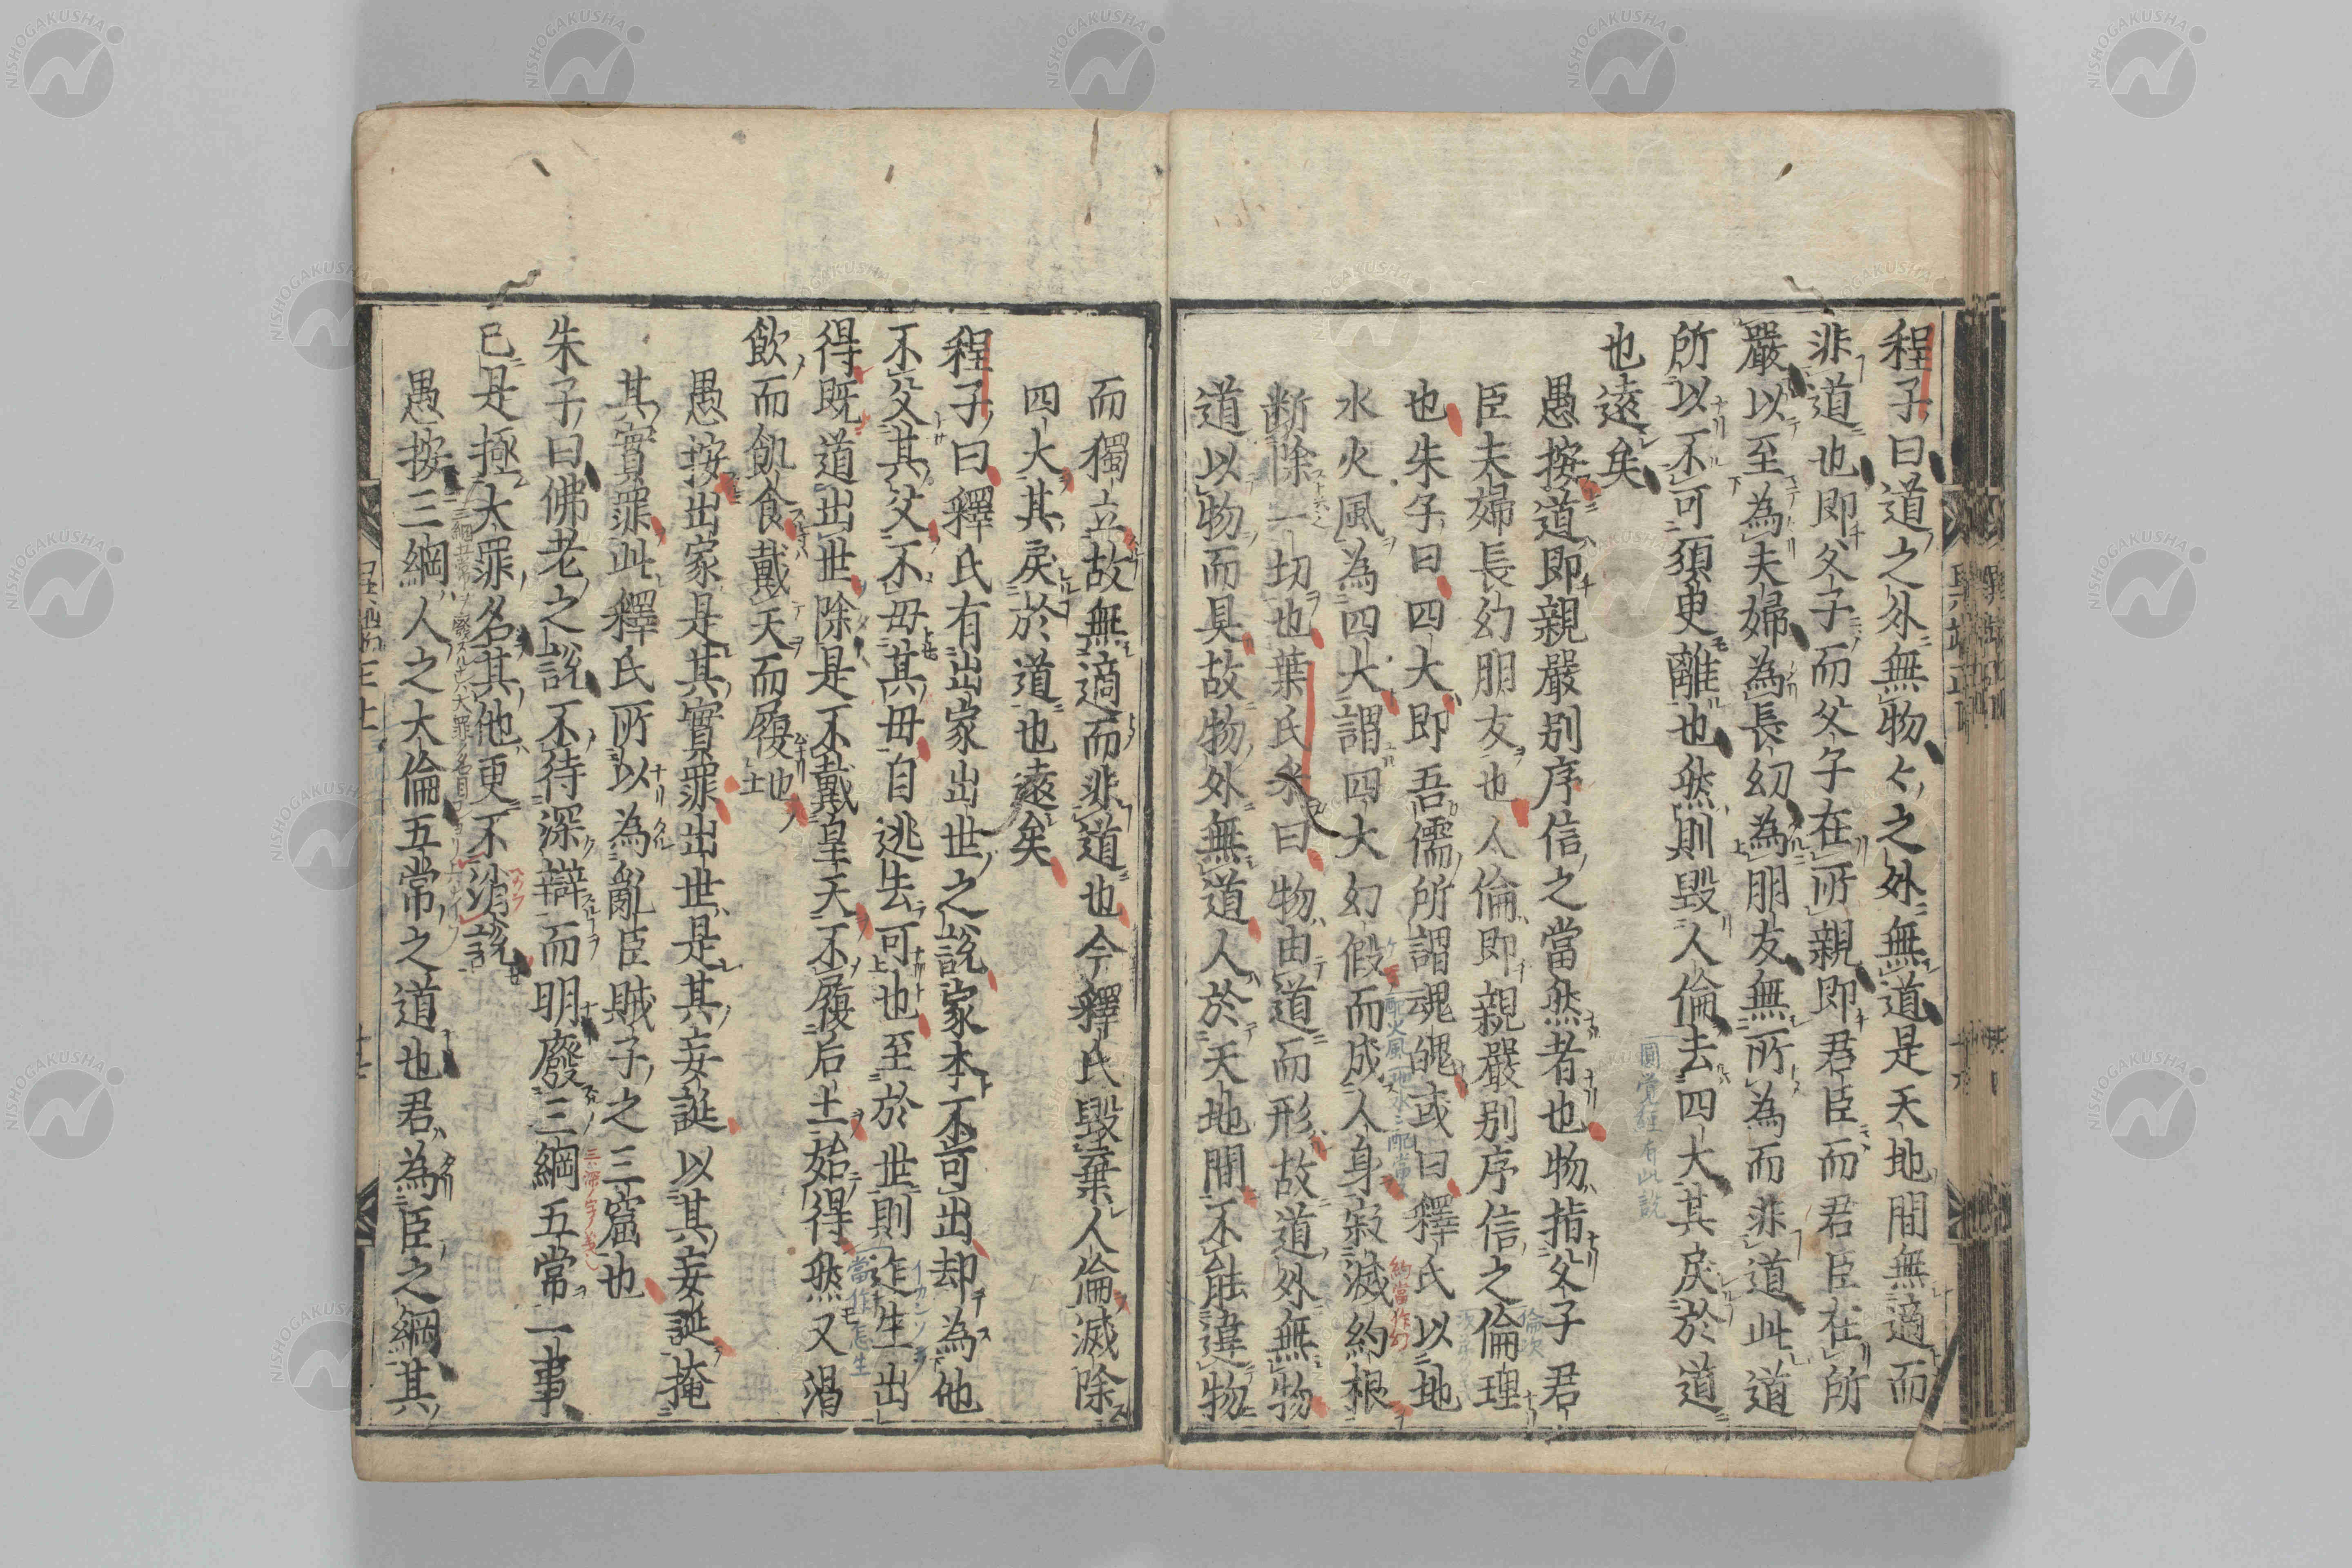 程子曰道之外無物々之外無道是天地間無適而
非道也即父子而父子在所親即君臣而君臣在所
嚴以至為夫婦為長幼為朋友無所為而非道此道
所以不可須臾離也然則毀人倫去四大其戾於道
也遠矣
圓覚経有此説
愚按道即親嚴別序信之當然者也物指父子君
臣夫婦長幼朋友也人倫即親嚴別序信之倫理
倫次
也朱子曰四大即吾儒所謂魂魄或曰釋氏以地
水火風為四大謂四大幻假而成人身寂滅約根
約當作幻
断除一切也葉氏采曰物由道而形故道外無物
道以物而具故物外無道人於天地間不能違物
而獨立故無適而非道也今釋氏毀棄人倫滅除
四大其戾於道也遠矣
程子曰釋氏有出家出世之說家本不可出却為他
不父其父不母其母自逃去可也至於世則迮生出
當作怎生
得既道出世除是不戴皇天不履后土始得然又渴
飲而飢食戴天而履地
土
愚按出家是其實罪出世是其妄誕以其妄誕掩
其實罪此釋氏所以為亂臣賊子之三窟也
朱子曰佛老之說不待深辯而明廢三綱五常一事
已是極大罪名其他更不消說
愚按三綱人之大倫五常之道也君為臣之綱其
NISHOGAKUSHA